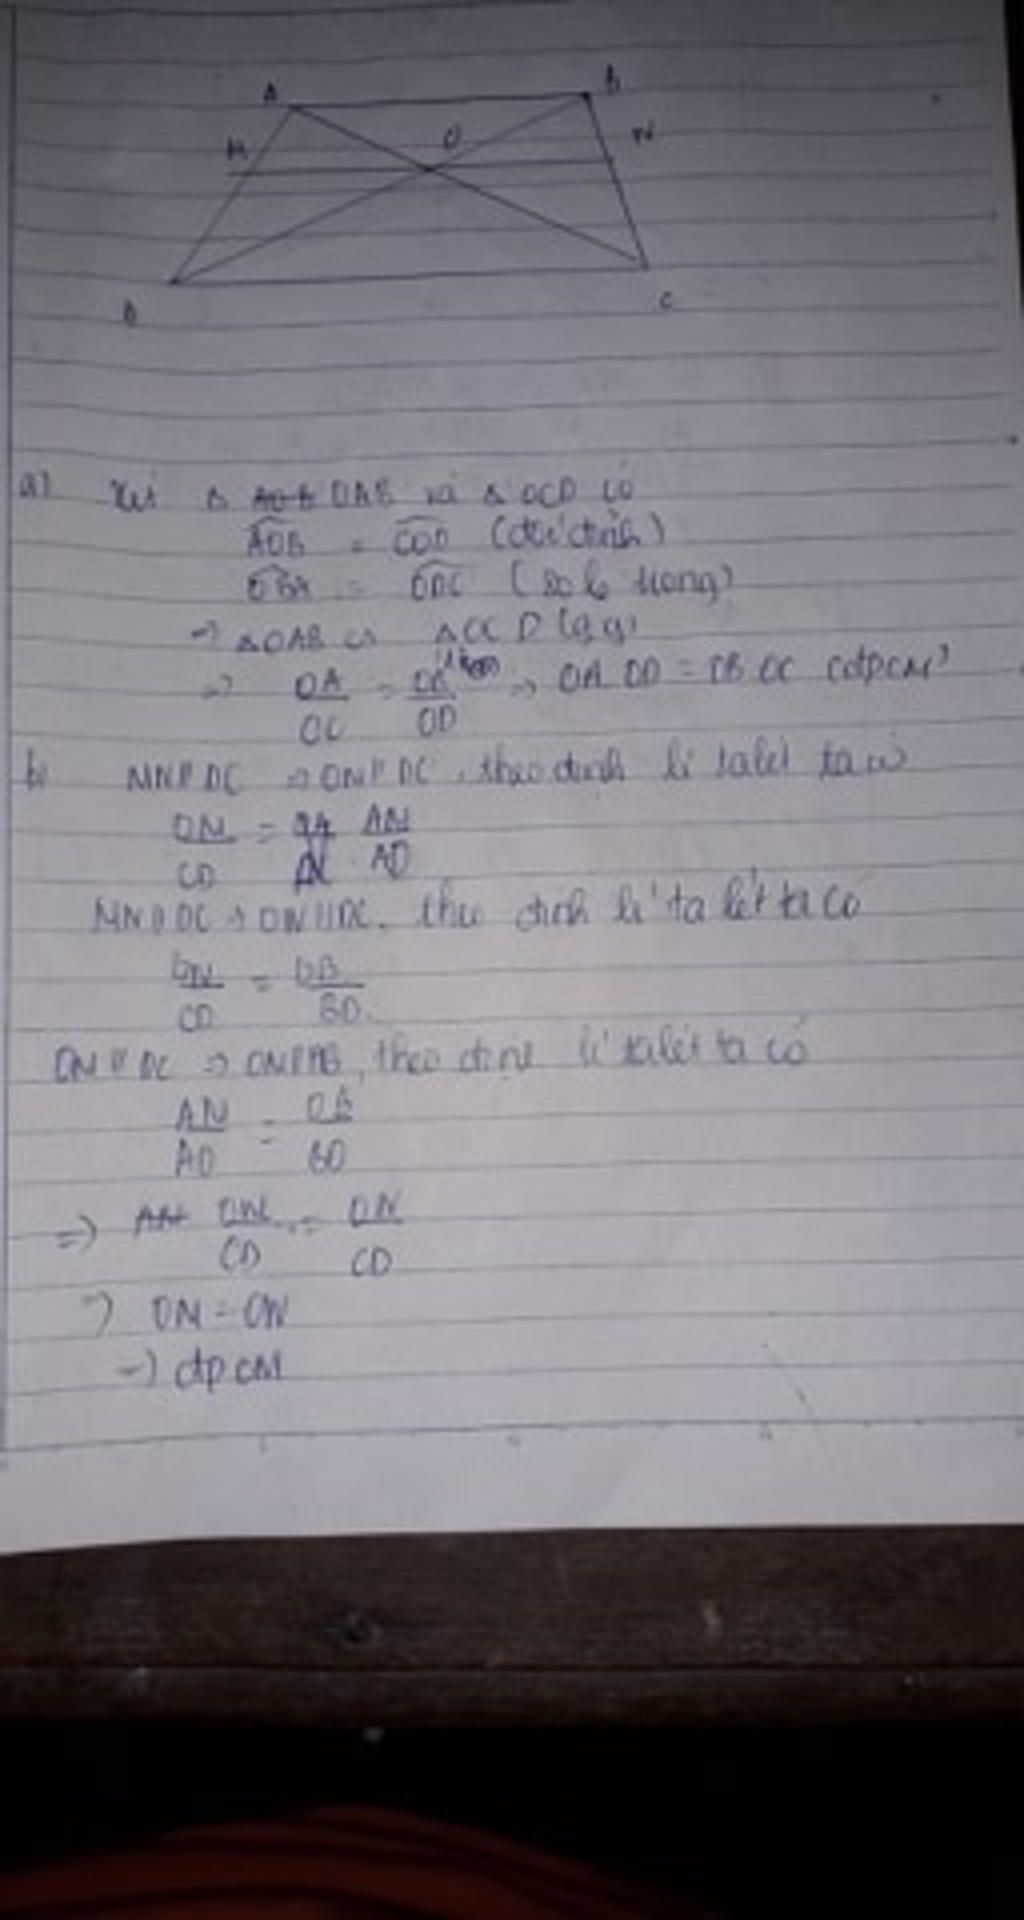 A B
M O N
D C
a) Xét Δ OAB và Δ OCD có
AOB = COD (đối đỉnh)
OBA = ODC (so le trong)
=> ΔOAB ∽ ΔOCD (g.g)
=> OA/OC = /OD => OA.OD = OB.OC (đpcm)
b) MN // DC => OM // DC, theo định lí talét ta có
OM/CD = AM/AD
MN // DC => ON // DC. theo định lí ta lét ta có
ON/CD = OB/BD.
OM // DC => OM // AB, theo định lí talét ta có
AM/AD = OB/BD
=> OM/CD = ON/CD
=> OM = ON
=> đpcm